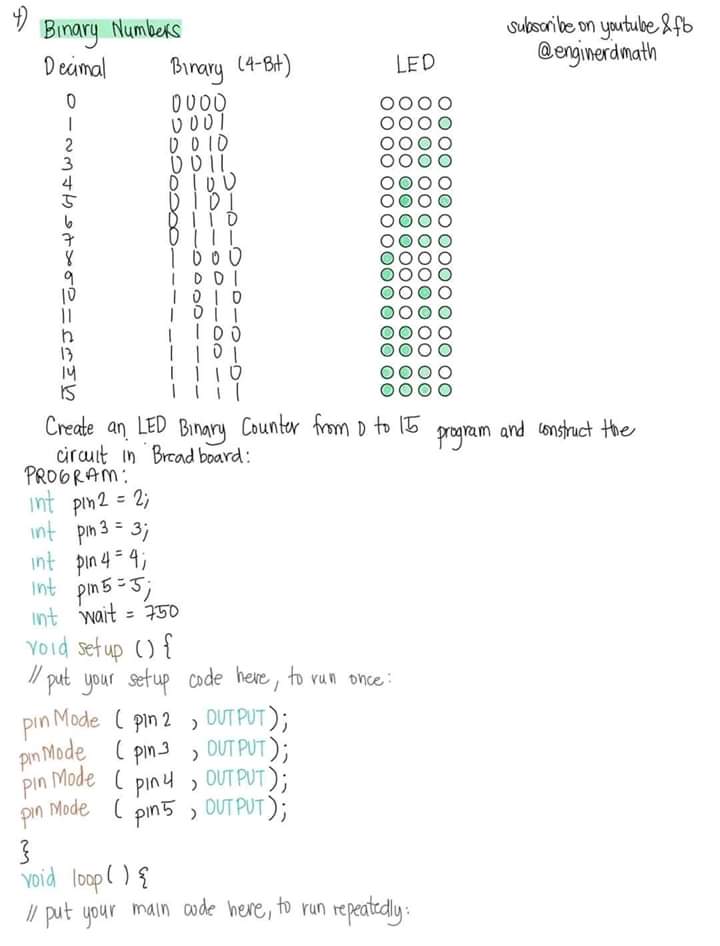 4) Binary Numbers
subscribe on youtube & fb
@enginerdmath
Decimal Binary (4-Bit) LED
0 0000
1 0001
2 0010
3 0011
4 0100
5 0101
6 0110
7 0111
8 1000
9 1001
10 1010
11 1011
12 1100
13 1101
14 1110
15 1111
Create an LED Binary Counter from 0 to 15 program and construct the
circuit in Breadboard:
PROGRAM:
int pin2 = 2;
int pin3 = 3;
int pin4 = 4;
int pin5 = 5;
int wait = 750
void setup () {
// put your setup code here, to run once:
pinMode ( pin2 , OUTPUT);
pinMode ( pin3 , OUTPUT);
pinMode ( pin4 , OUTPUT);
pinMode ( pin5 , OUTPUT);
}
void loop( ) {
// put your main code here, to run repeatedly: